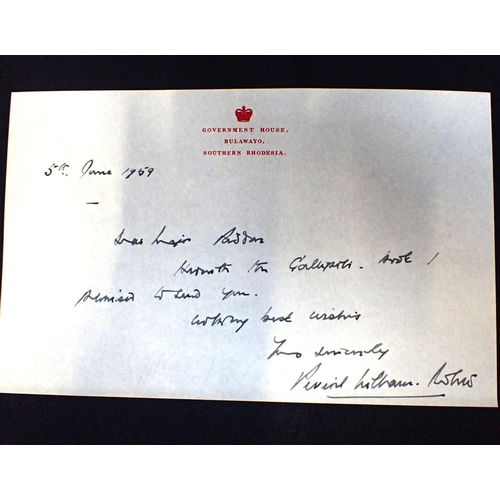 GOVERNMENT HOUSE,
BULAWAYO,
SOUTHERN RHODESIA.
5th. June 1959
Dear Major
Herewith the Gallipoli book I
promised to send you.
With my best wishes
Yours sincerely
Peveril William-Powlett